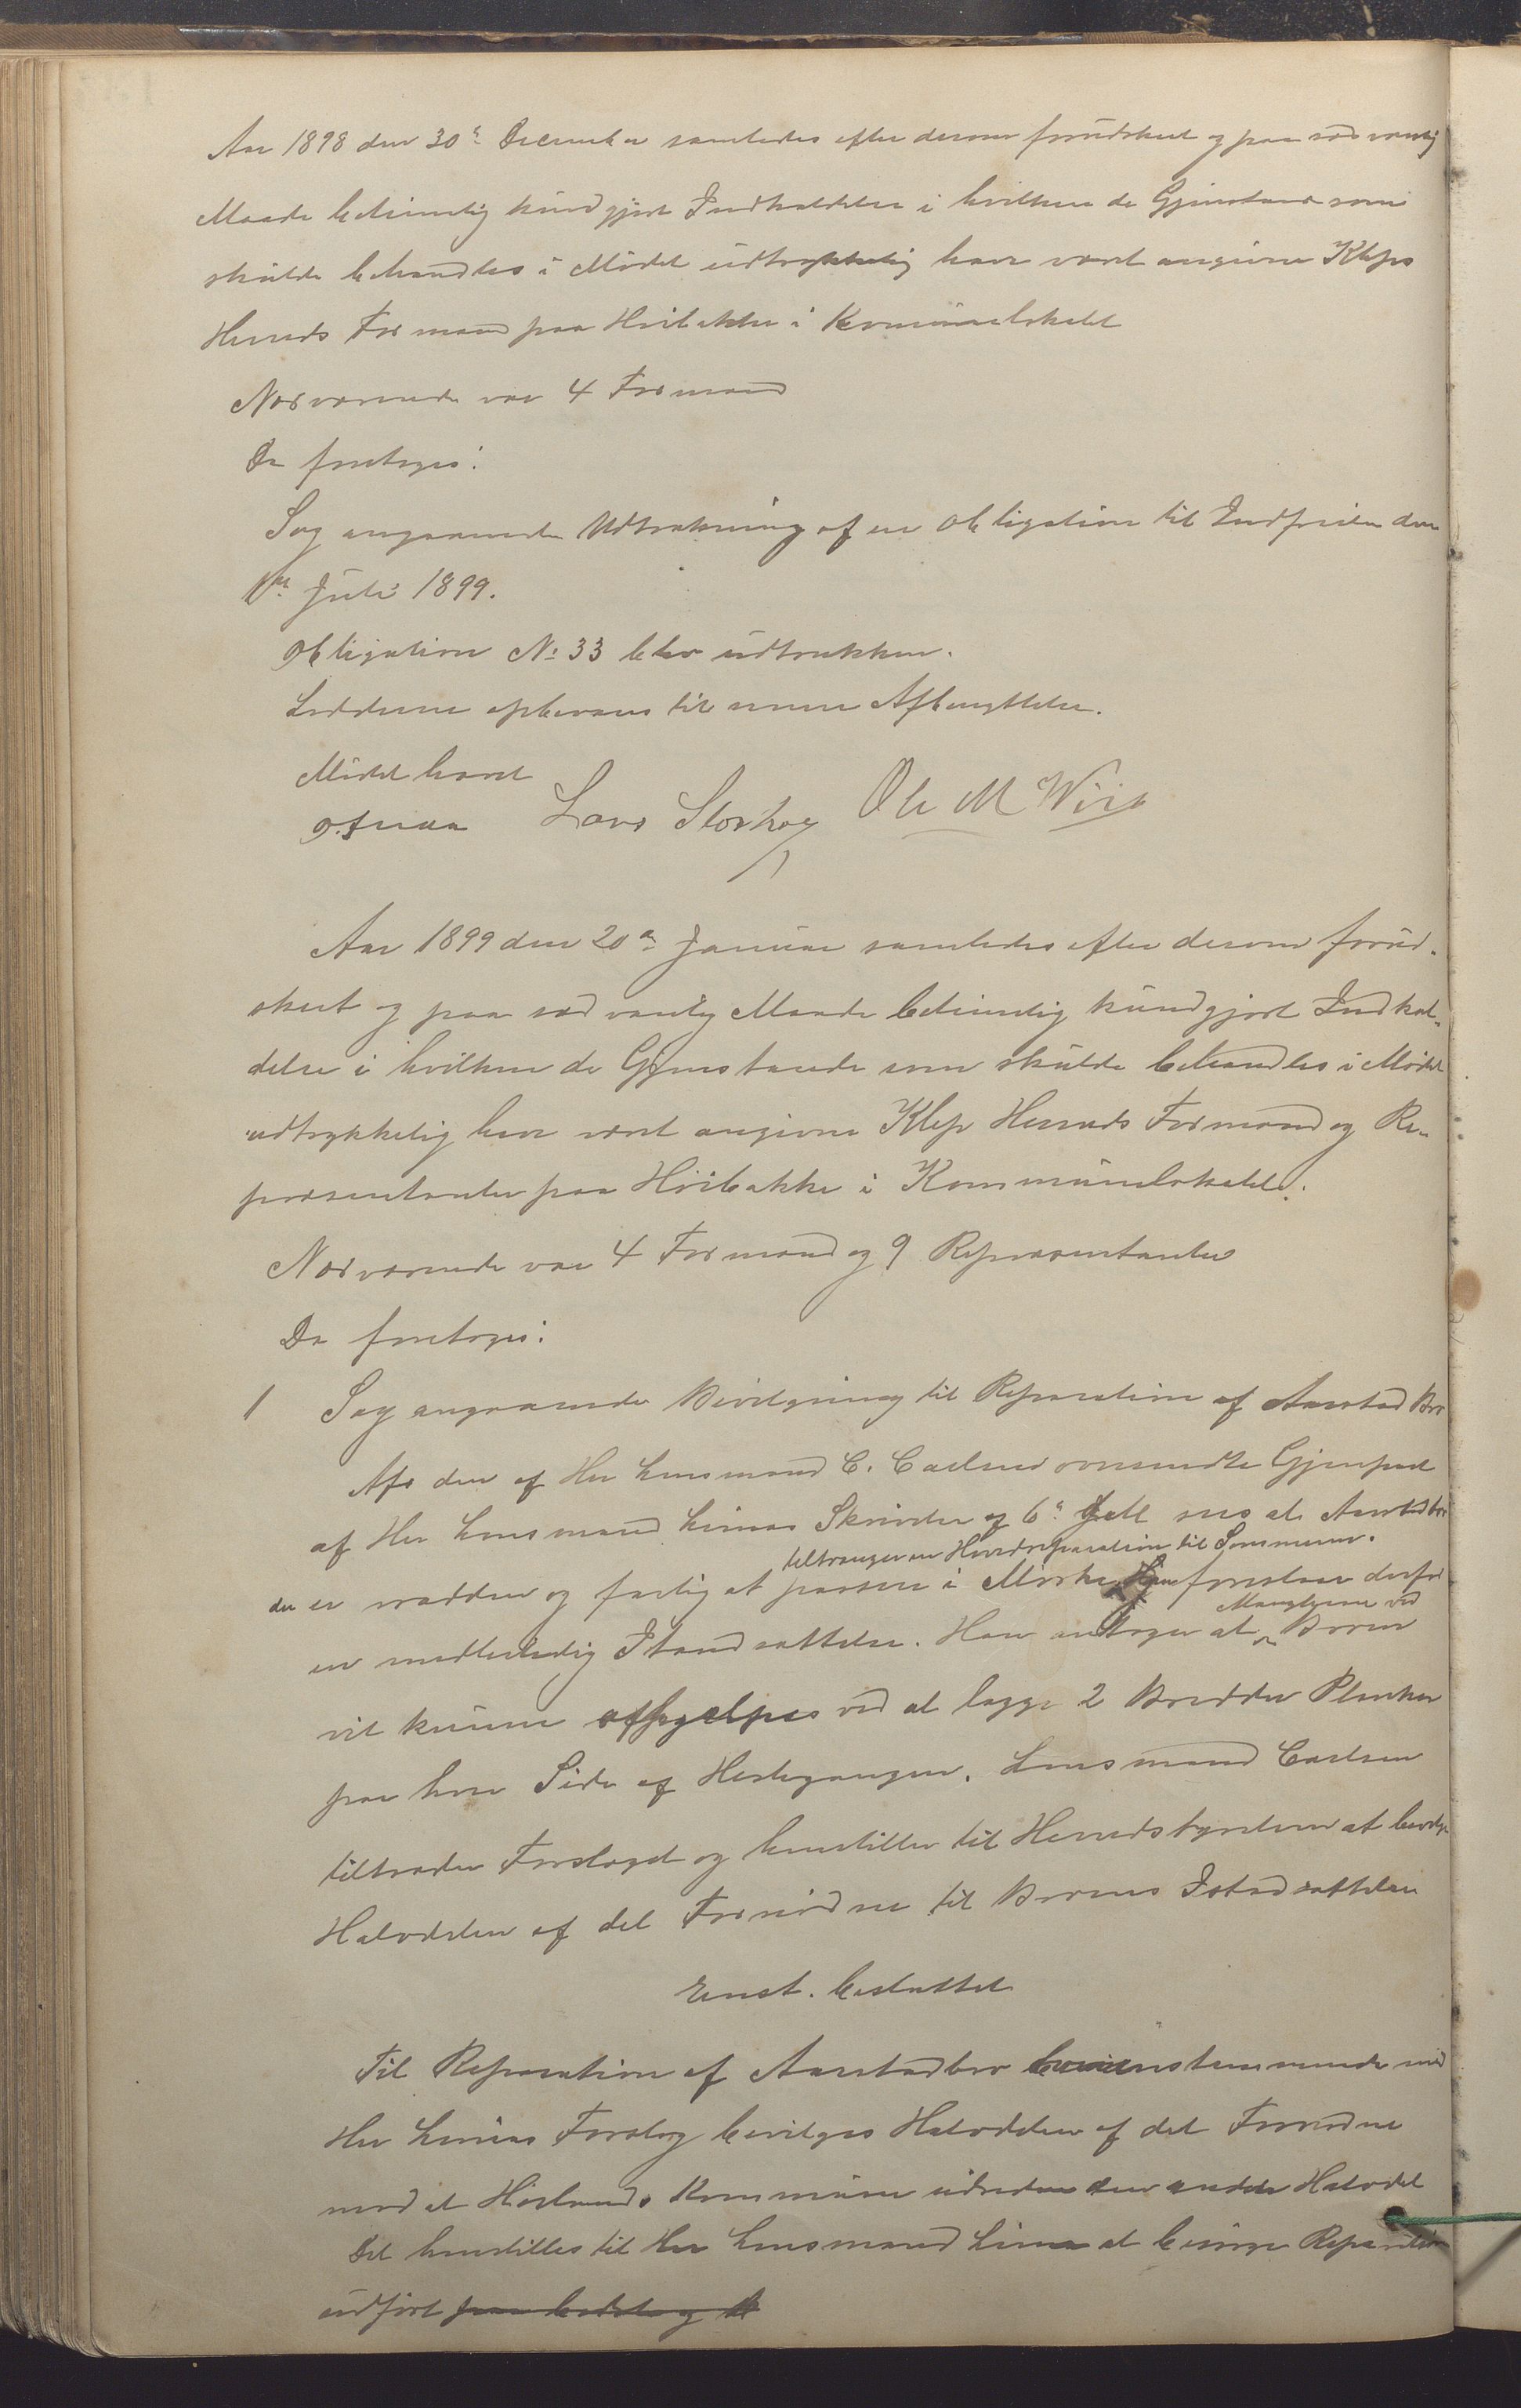 Aar 1898 den 30te December samledes efter derom forudskeet og paa sædvanlig
Maade betimelig kundgjort Indkaldelse i hvilken de Gjenstande som
skulde behandles i Mødet udtrykkelig have været angivne Kleps
Herreds Formænd paa Høibakke i Kommunelokalet
Nærværende var 4 Formænd
Da foretoges:
Sag angaaende Udtrækning af en Obligation til Indfrielse den
1ste Juli 1899.
Obligation No 33 blev udtrukken.
Lodderne opbevares til senere Afbenyttelse.
Mødet hævet
Lars Storhoug Ole M Wiig
Aar 1899 den 20de Januar samledes efter derom forud-
skeet og paa sædvanlig Maade betimelig kundgjort Indkal-
delse i hvilken de Gjenstande som skulde behandles i Mødet
udtrykkelig have været angivne Klep Herreds Formænd og Re-
præsentanter paa Høibakke i Kommunelokalet.
Nærværende var 4 Formænd og 9 Repræsentanter
Da foretoges:
1 Sag angaaende Bevilgning til Reparation af Aarstad Bro
Af den af Hr Lensmand C. Carlsen oversendte Gjenpart
af Hr Lensmand Limas Skrivelse af 6te sees at Aarstadbro
tiltrænger en Hovedreparation til Sommeren.
der er raadden og farlig at passere i Mørke foreslaar derfor
Manglerne ved
en midlertidig Istandsættelse. Han antager at Broen
vil kunne afhjælpes ved at lægge 2 Bredder Planker
paa hver Side af Hestegangen. Lensmand Carlsen
tiltræder Forslaget og henstiller til Herredsstyrelsen at bevilge
Halvdelen af det Fornødne til Broens Istandsættelse
Enst. besluttet
Til Reparation af Aarstadbro overensstemmende med
Hr Limas Forslag bevilges Halvdelen af det Fornødne
mod at Høilands Kommune udreder den anden Halvdel
Det henstilles til Hr Lensmand Lima at besørge Reparationen
udført paa bedst og b